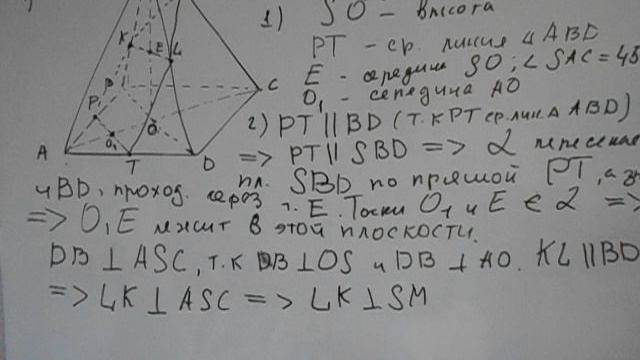 1) SO - высота
PT - ср. линия ABD
E - середина SO; ∠ SAC = 45
O₁ - середина AO
2) PT || BD (т.к PT ср. лин. Δ ABD)
=> PT || SBD => α
пл. SBD по прямой PT, а
и BD, проход. через т. E. Точки O₁ и E ∈ α =>
=> O₁E лежит в этой плоскости.
DB ⊥ ASC, т.к DB ⊥ OS и DB ⊥ AO. KL || BD
=> LK ⊥ ASC => LK ⊥ SM
K
E
L
B
P
C
O
O₁
A
T
D